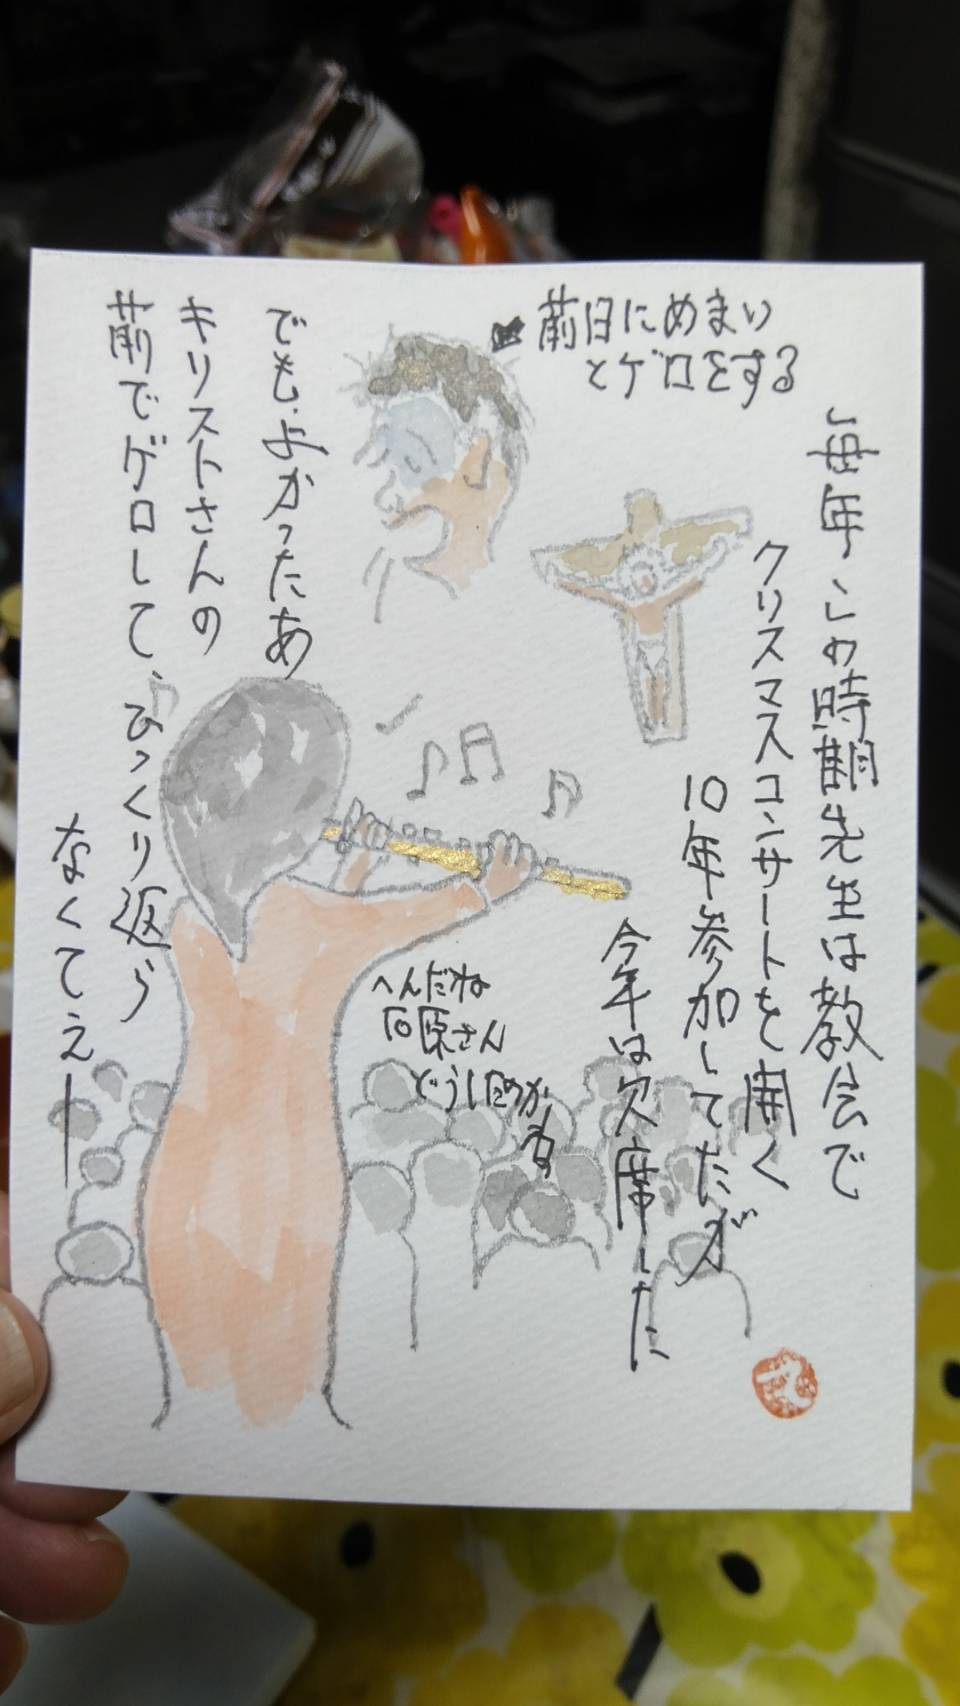 前日にめまい
とゲロをする
毎年この時期先生は教会で
クリスマスコンサートを開く
10年参加してたが
今年は欠席した
へんだね
石原さん
どうし
でも、よかったあ
キリストさんの
前でゲロして、ひっくり返ら
なくてえー